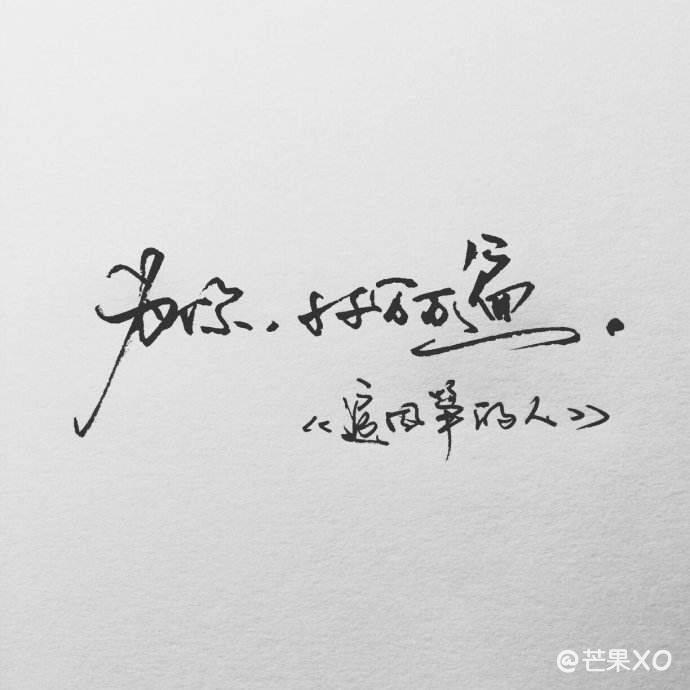 为你，千千万万遍．
《追风筝的人》
@芒果XO